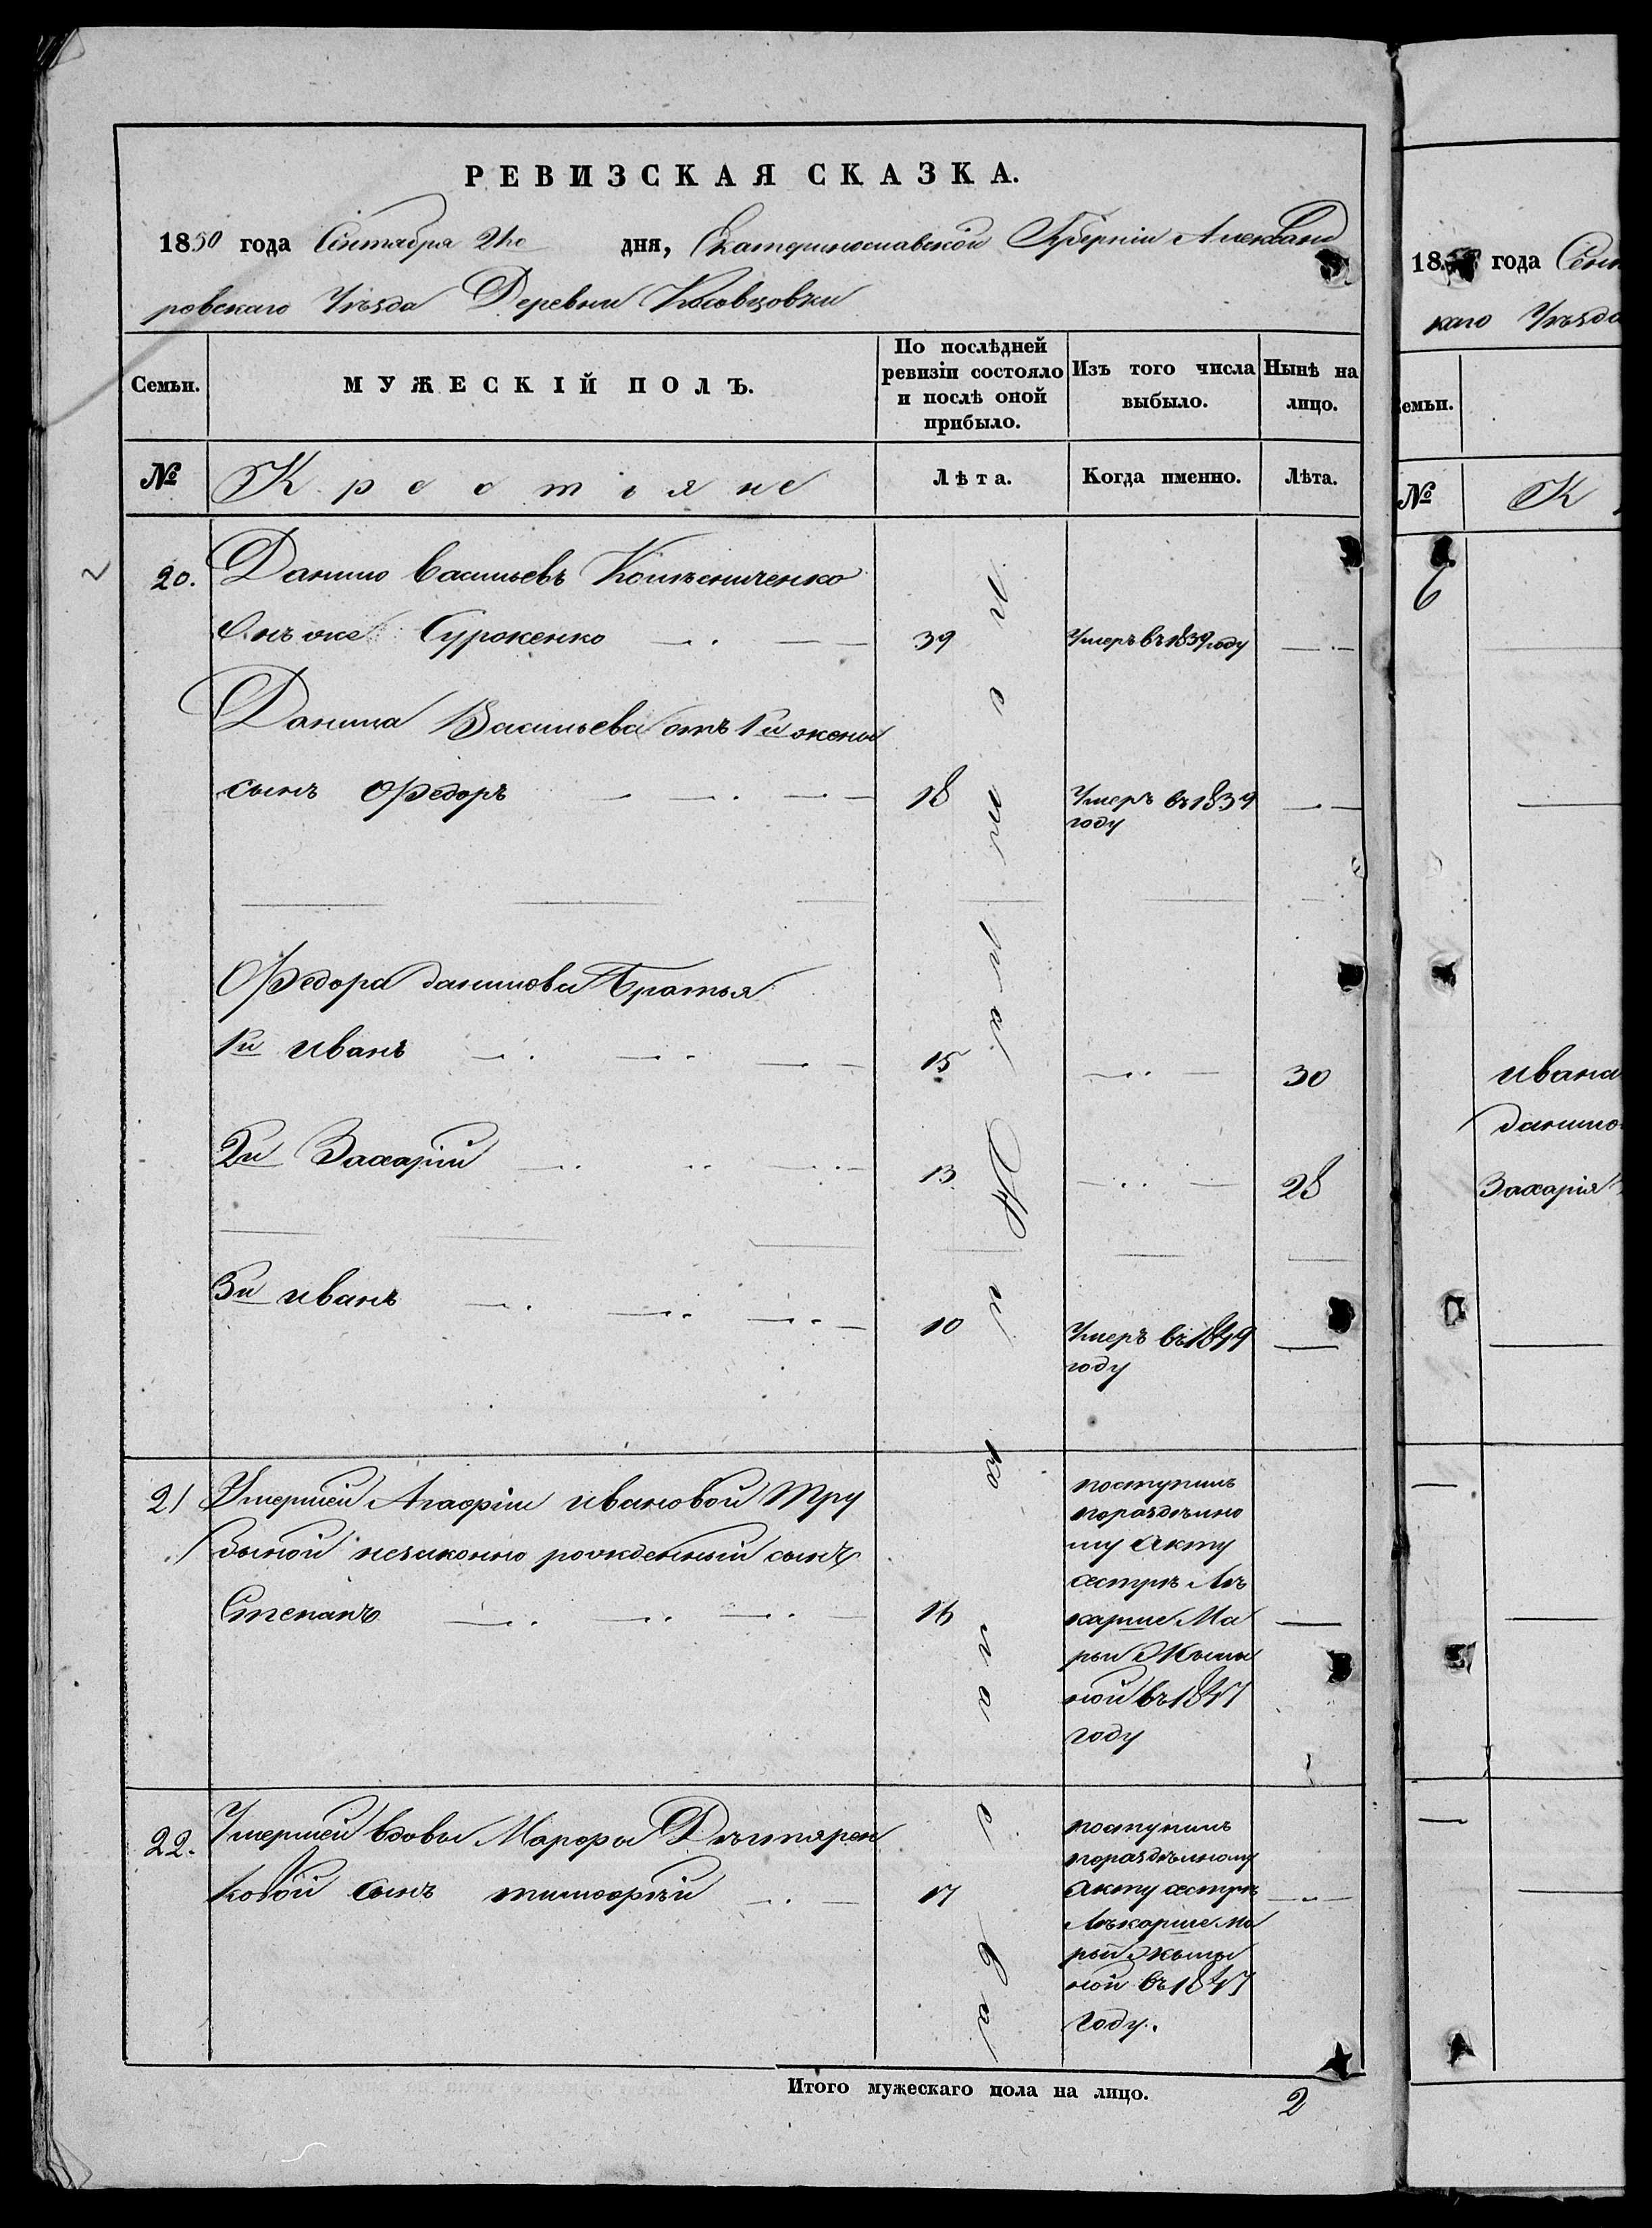 РЕВИЗСКАЯ СКАЗКА.
1850 года Сентября 2го дня, Екатеринославской Губерніи Александ
ровскаго Уѣзда Деревни
Семьи.
МУЖЕСКІЙ ПОЛЪ.
По послѣдней ревизіи состояло и послѣ оной прибыло.
Изъ того числа выбыло.
Нынѣ на лицо.
№
Крестьяне
Лѣта.
Когда именно.
Лѣта.
20.
Данило Васильевъ Колѣсниченко
Онъ же Сурженко
39
Умеръ въ 1839 году
Данила Васильева отъ 1й жены
сынъ Ѳедоръ
18
Умеръ въ 1839
году
Ѳедора Данилова Братья
1й Иванъ
15
30
2й Захарій
13
28
3й Иванъ
10
Умеръ въ 1849
году
21
Умершей Агафіи Ивановой Тру
незаконно рожденный сынъ
Степанъ
16
поступилъ
пораздѣлно
му Акту
сестрѣ Лѣ
карше Ма
рьи
ной въ 1847
году
22.
Умершей вдовы Марфы Дѣгтярен
ковой сынъ Тимофѣй
17
поступилъ
пораздѣлному
Акту сестрѣ
Лѣкарше Ма
рьи
ной въ 1847
году.
Итого мужескаго пола на лицо.
2
18 года Сен
каго Уѣзда
емьи.
№
К
6
Ивана
Данило
Захарія